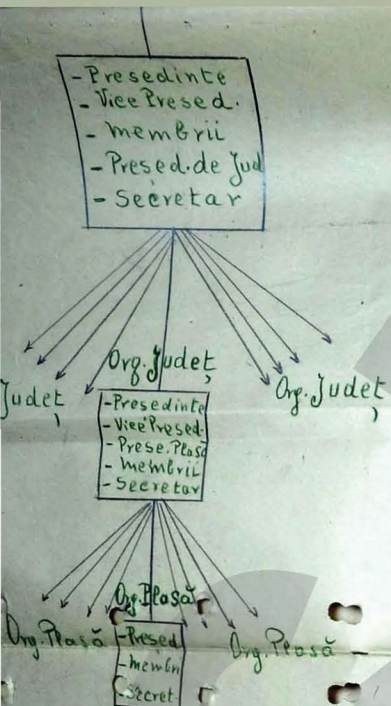 - Presedinte
- Vice Presed.
- membrii
- Presed. de Jud
- Secretar
Org. Județ
Județ
Org. Județ
- Presedinte
- Vice Presed.
- Prese. Plasă
- membrii
- Secretar
Org. Plasă
Org. Plasă
Org. Plasă -
- Presed
- membri
- Secret